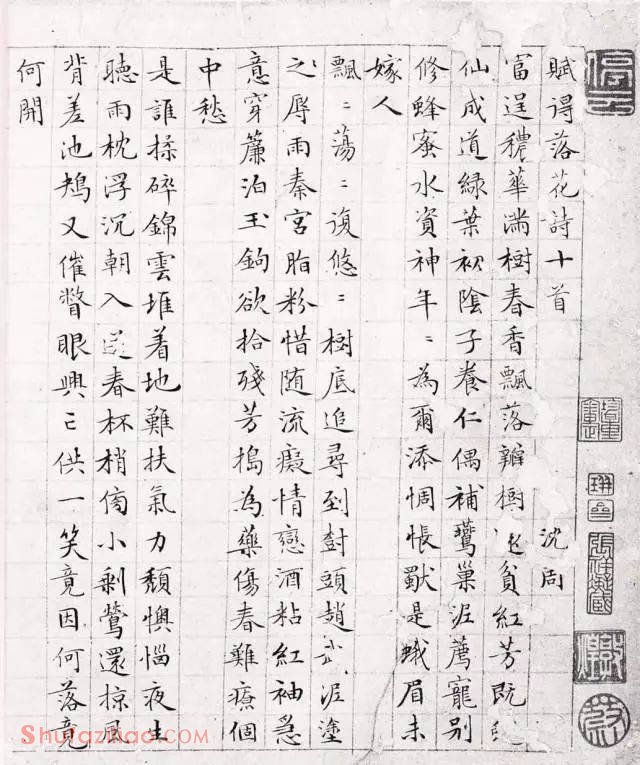 賦得落花詩十首 沈周
富逞穠華滿樹春香飄落瓣樹還貧紅芳既
仙成道綠葉初陰子養仁偶補鶯巢泥薦寵別
修蜂蜜水資神年〻為爾添惆悵獸是蛾眉未
嫁人
飄〻蕩〻復悠〻樹底追尋到樹頭趙武泥塗
之辱雨秦宮脂粉惜随流癡情戀酒粘紅袖急
意穿簾泊玉鉤欲拾殘芳搗為藥傷春難療個
中愁
是誰揉碎錦雲堆着地難扶氣力頹懊惱夜生
聽雨枕浮沉朝入送春杯梢傍小剩鶯還掠風
背差池鴆又催瞥眼興亡供一笑竟因何落竟
何開
Shufaziliao.com